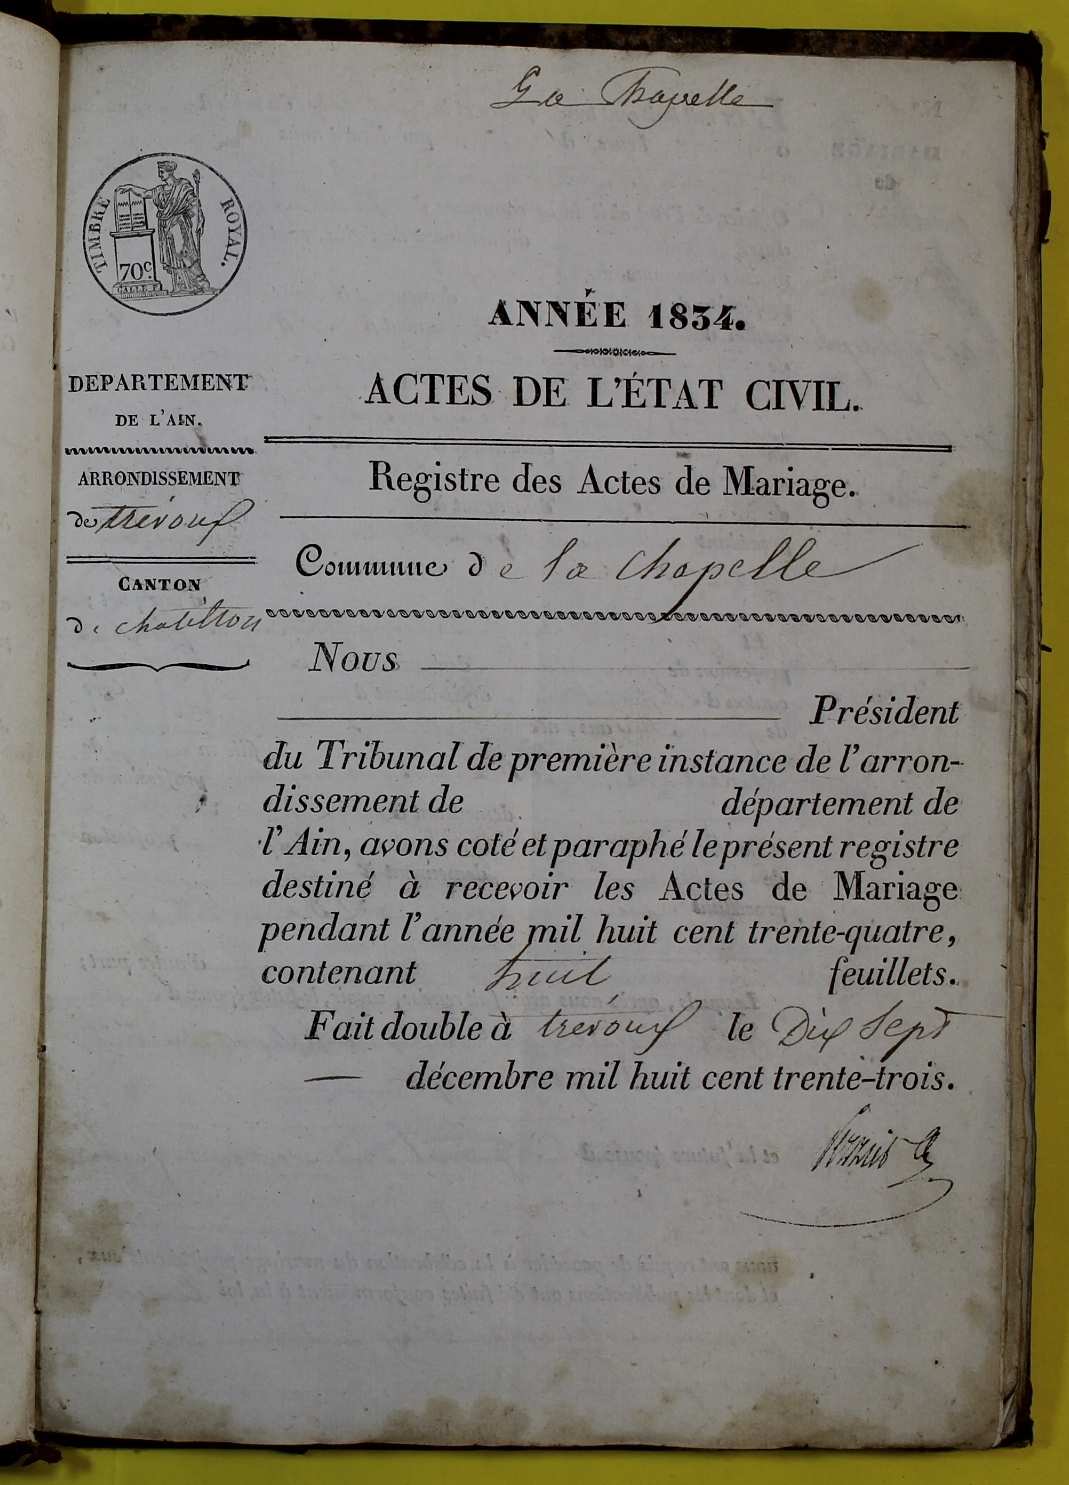 La Chapelle
TIMBRE ROYAL.
70c.
ANNÉE 1834.
DEPARTEMENT
DE L'AIN.
ACTES DE L'ÉTAT CIVIL.
ARRONDISSEMENT
de trévoux
Registre des Actes de Mariage.
CANTON
de chatillon
Commune de la chapelle
Nous
Président
du Tribunal de première instance de l'arron-
dissement de département de
l'Ain, avons coté et paraphé le présent registre
destiné à recevoir les Actes de Mariage
pendant l'année mil huit cent trente-quatre,
contenant huit feuillets.
Fait double à trévoux le Dix Sept
— décembre mil huit cent trente-trois.